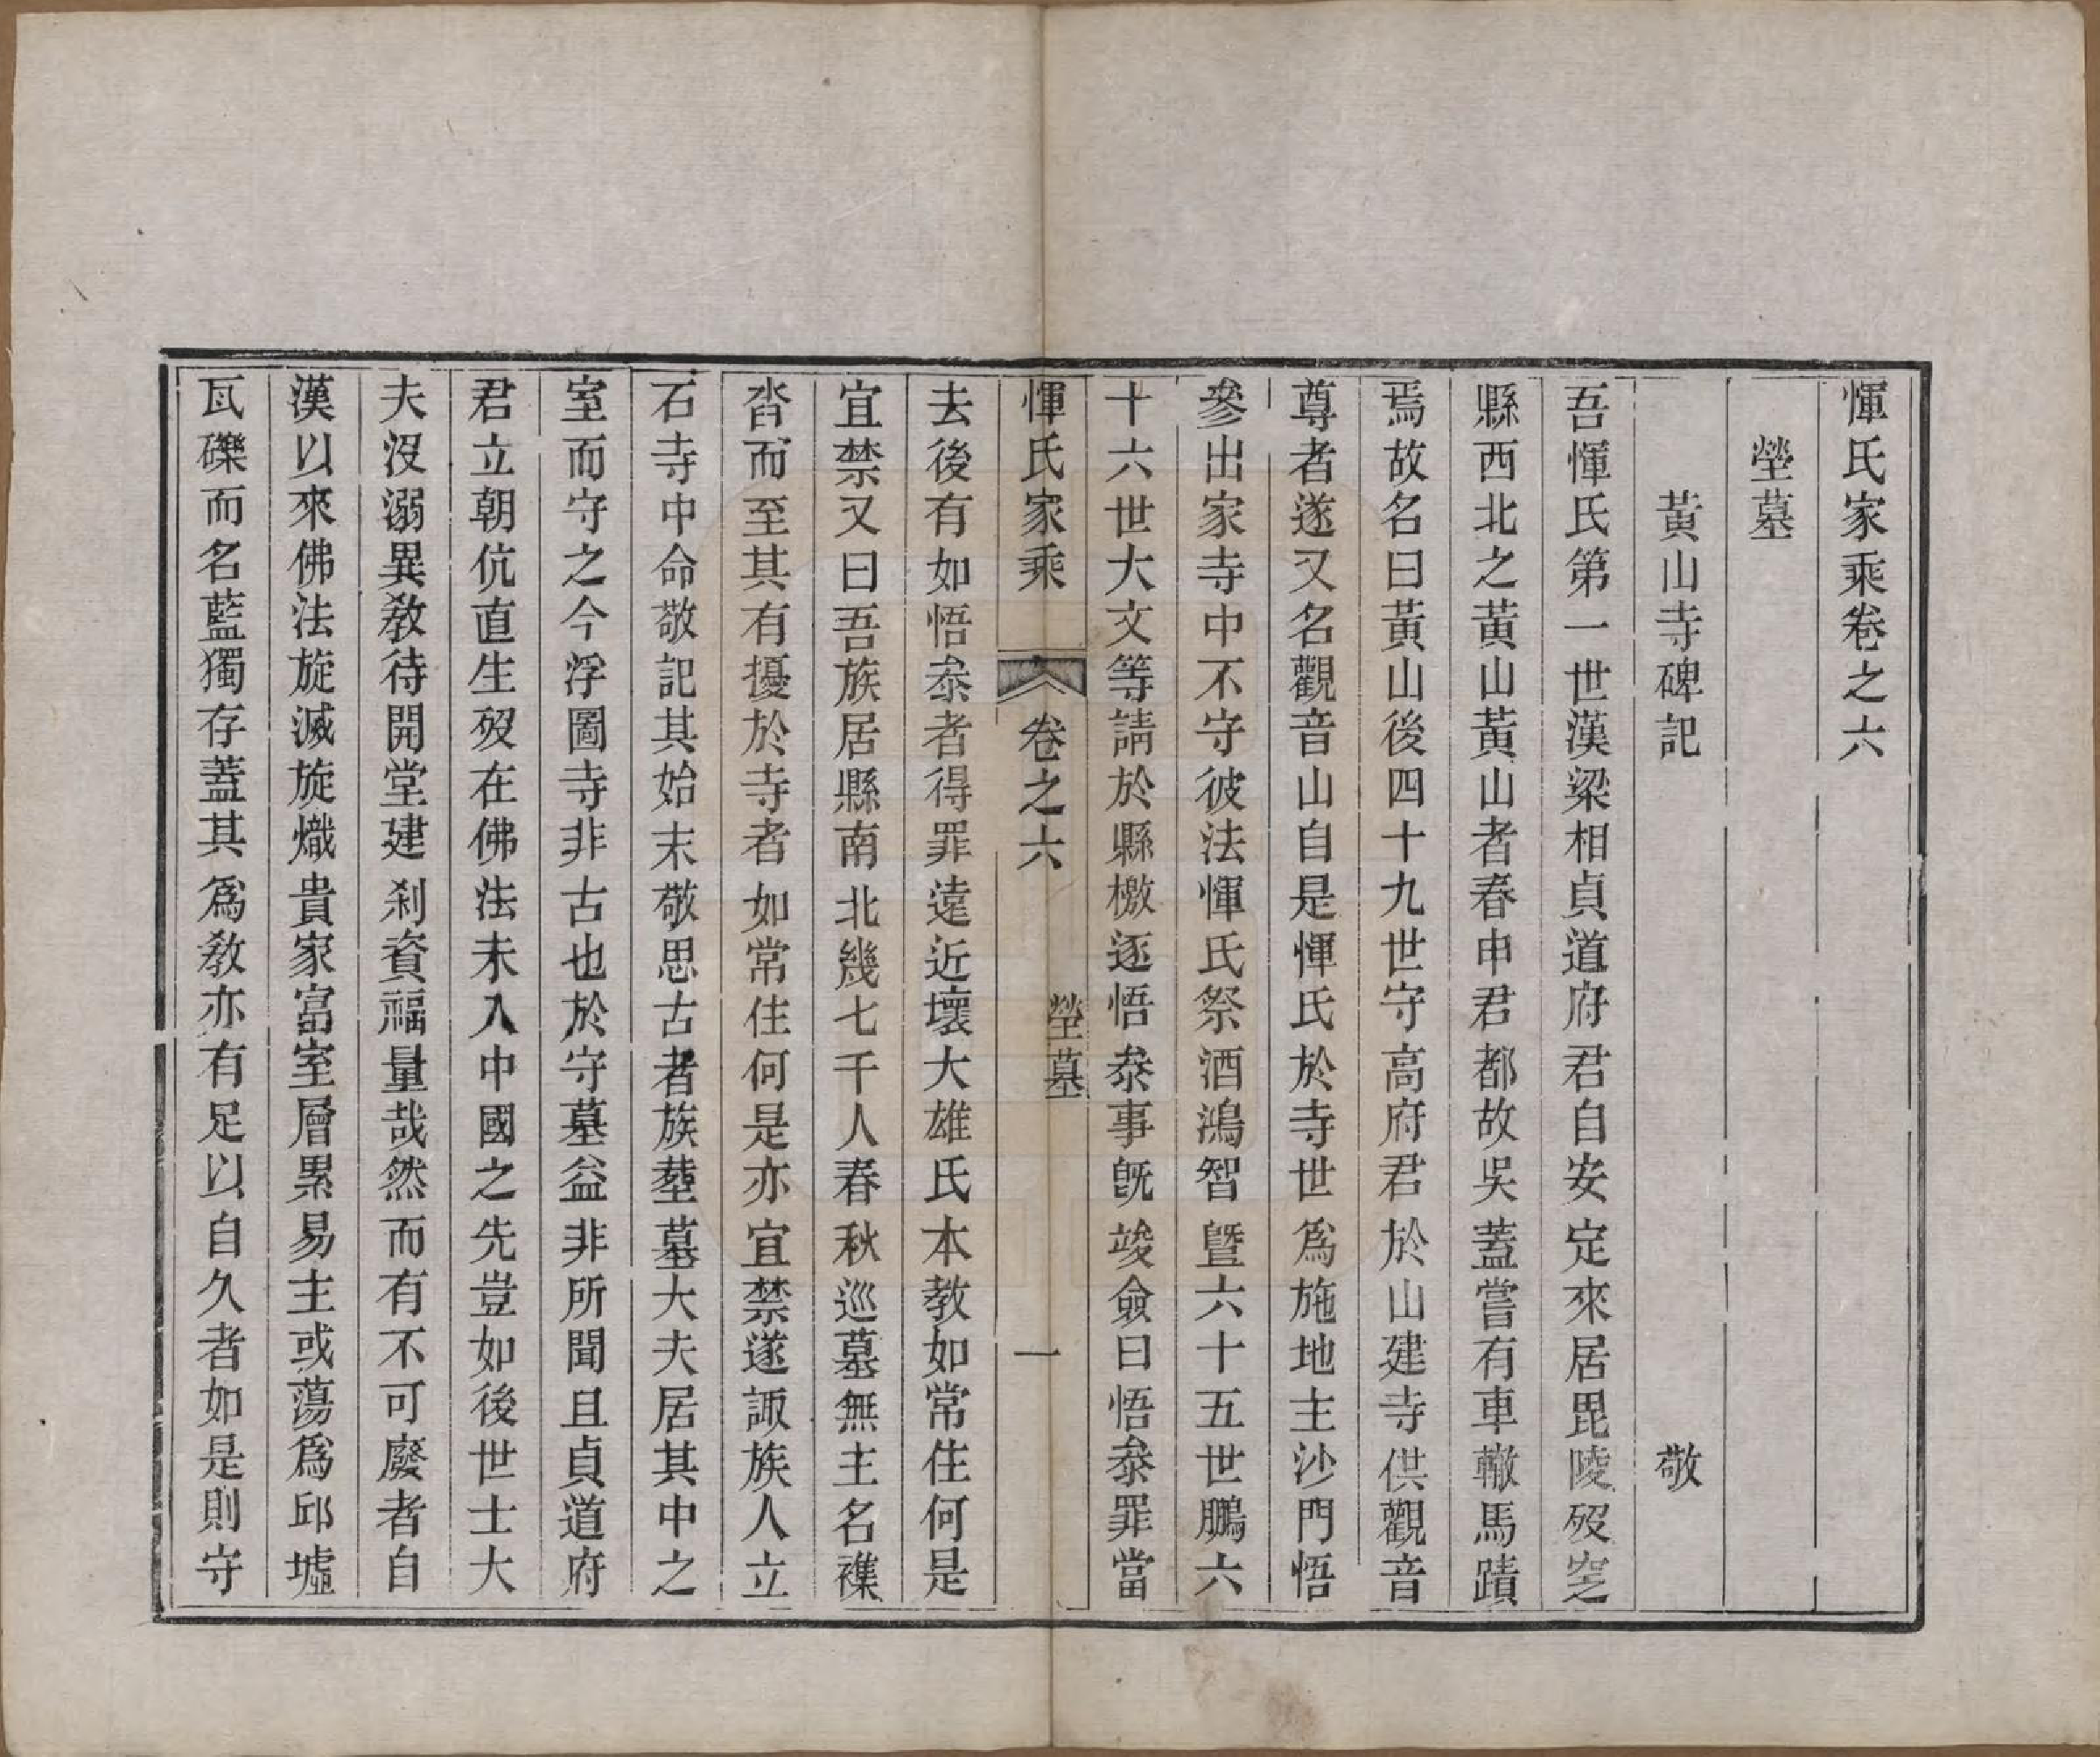 惲氏家乘卷之六
塋墓
黃山寺碑記　敬
吾惲氏第一世漢梁相貞道府君自安定來居毘陵歿窆
縣西北之黃山黃山者春申君都故吳蓋嘗有車轍馬蹟
焉故名曰黃山後四十九世守高府君於山建寺供觀音
尊者遂又名觀音山自是惲氏於寺世爲施地主沙門悟
參出家寺中不守彼法惲氏祭酒鴻智暨六十五世鵬六
十六世大文等請於縣檄逐悟叅事旣竣僉曰悟叅罪當
惲氏家乘　卷之六　塋墓　一
去後有如悟叅者得罪遠近壞大雄氏本教如常住何是
宜禁又曰吾族居縣南北幾七千人春秋巡墓無主名襍
沓而至其有擾於寺者如常住何是亦宜禁遂諏族人立
石寺中命敬記其始末敬思古者族塟墓大夫居其中之
室而守之今浮圖寺非古也於守墓益非所聞且貞道府
君立朝伉直生歿在佛法未入中國之先豈如後世士大
夫沒溺異敎待開堂建刹資福量哉然而有不可廢者自
漢以來佛法旋滅旋熾貴家富室層累易主或蕩爲邱墟
瓦礫而名藍獨存蓋其爲敎亦有足以自久者如是則守